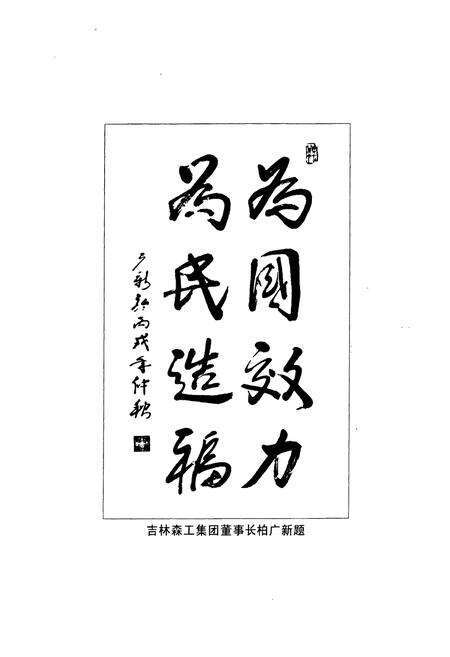 為國效力
為民造福
广新敬丙戌年仲秋
吉林森工集团董事长柏广新题